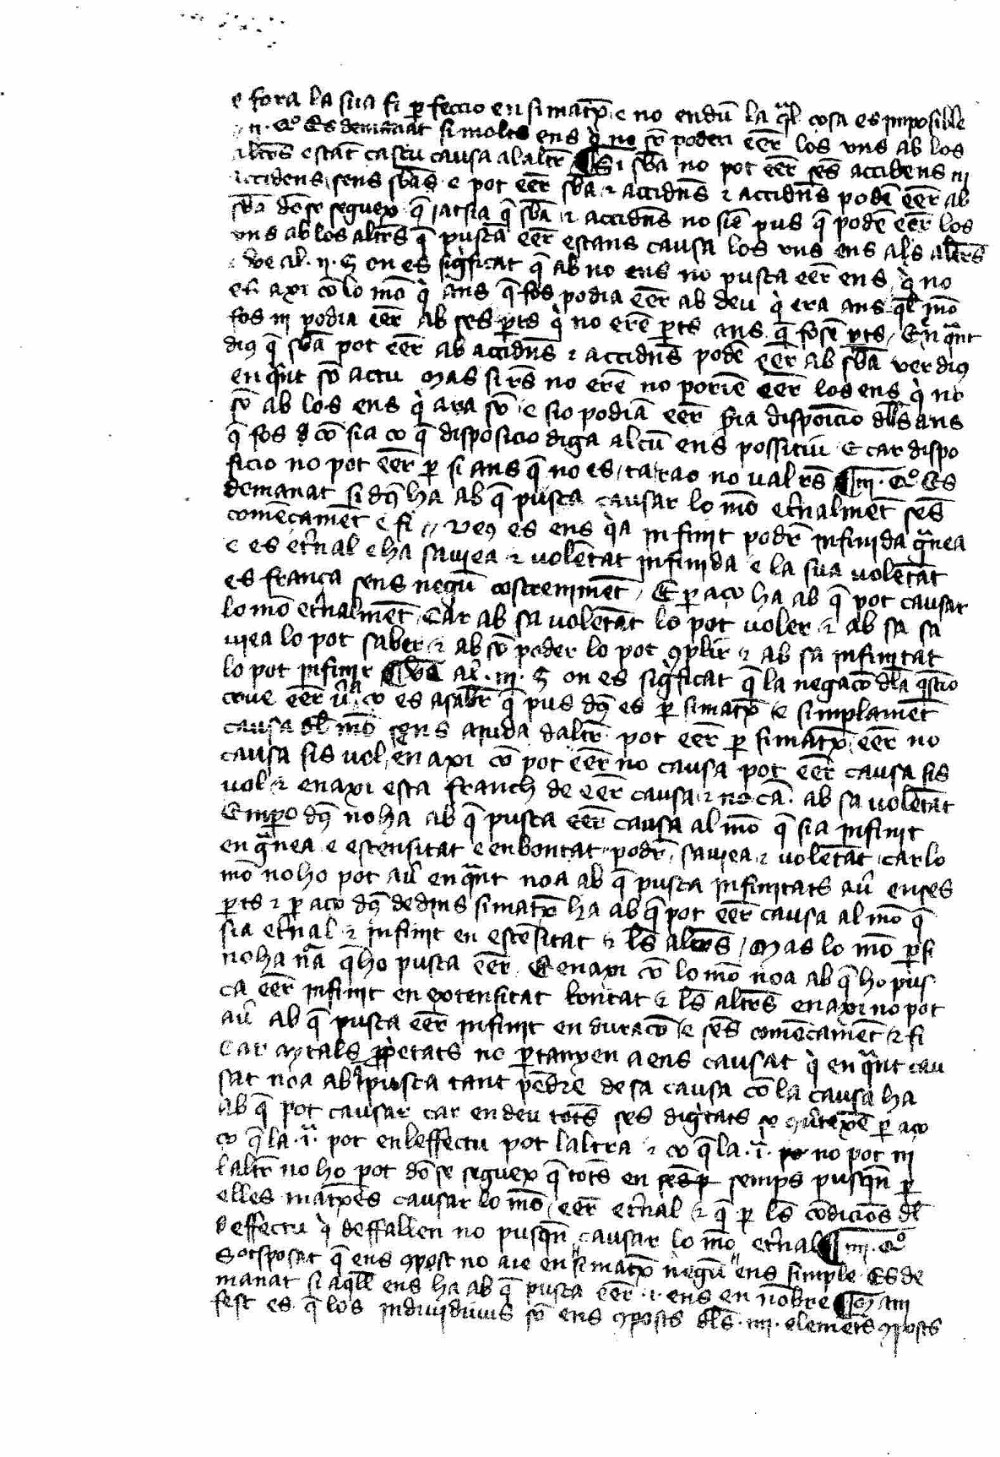 e fora la sua fi ꝑfeccio en si matx̄ e no en dūa la q̄l cosa es imposible
.ii. Qo. Es demanat si molts ens q̀ no sō poden eēr los vns ab los
altr̄s estāt cascu causa al altr̄ ¶ Si sb̄a no pot eēr sēs accidens ni
accidens sens sb̄as e pot eēr sb̄a ⁊ accidn̄s ⁊ accidn̄s podē eēr ab
sb̄a dōse seguex q̄ iatsia q̄ sb̄a ⁊ accidn̄s no siē pus q̄ podē eēr los
vns ab los altr̄s q̄ pusca eēr estans causa los vns ens als altr̄s
ve al .ii. S on es sig̀ficat q̄ ab no ens no pusca eēr ens q̀ no
en axi cō lo mō q̀ ans q̄ fos podia eēr ab deu q̀ era ans q̄l mō
fos ni podia eēr ab ses ꝑts q̀ no erē ꝑts ans q̄ fosē ꝑts / En q̄nt
diꝯ q̄ sb̄a pot eēr ab accidn̄s ⁊ accidn̄s podē eēr ab sb̄a ver diꝯ
en q̄nt sō actu Mas si r̄s no erē no poriē eēr los ens q̀ no
sō ab los ens q̀ ara sō e sio podiā eēr sr̄ia disposicio dl̄s ans
q̄ fos e cō sia co q̄ disposicio diga alcū ens possitiū E car dispo
sicio no pot eēr ꝑ si ans q̄ no es ta rao no val r̄s ¶ .iii. Qo. Es
demanat si dꝯ ha ab q̄ pusca causar lo mō et̄nalmēt sēs
comēcamēt e fi // Deꝯ es ens q̀a infinit podr̄ infinida q̄nea
e es et̄nal e ha saviea ⁊ volētat infinida e la sua volētat
es franca sens negū costrenimēt / E ꝑ aco ha ab q̄ pot causar
lo mō et̄nalmēt Car ab sa volētat lo pot voler ⁊ ab sa sa
viea lo pot saber ⁊ ab sō poder lo pot ꝯplir ⁊ ab sa infinitat
lo pot infinir ¶ Ve al .iii. S on es sig̀ficat q̄ la negacō dl̄a q̄stio
cove eēr v̄a co es a sabr̄ q̄ pus dꝯ es ꝑ si matx̄ e simplamēt
causa dl̄ mō sens aiuda daltr̄ pot eēr ꝑ si matx̄ eēr no
causa sis vol en axi cō pot eēr no causa pot eēr causa sis
vol ⁊ en axi esta franch de eēr causa ⁊ no cā ab sa volētat
Empo dꝯ no ha ab q̄ pusca eēr causa al mō q̄ sia infinit
en q̄nea e estensitat e en bontat podr̄ saviea ⁊ volētat car lo
mō no ho pot aū en q̄nt no a ab q̄ pusca infinitats aū en ses
ꝑts ⁊ ꝑ aco dꝯ dedins si matx̄ ha ab q̄ pot eēr causa al mō q̄
sia et̄nal ⁊ infinit en estēsitat ⁊ ls̄ altr̄s / Mas lo mō ꝑ si
no ha n̄a q̄ ho pusca eēr. E en axi cō lo mō no a ab q̄ ho pus
ca eēr infinit en extensitat bontat ⁊ ls̄ altr̄s en axi no pot
aū ab q̄ pusca eēr infinit en duracō e sēs comēcamēt ⁊ fi
Car aytals ꝓpietats no ꝑtanyen a ens causat q̀ en q̄nt cau
sat no a ab q̄ pusca tant pēdre de sa causa cō la causa ha
ab q̄ pot causar car en deu tots ses dig̀tats se ꝯūtexē ꝑ aco
co q̄ la .i.ᵃ pot en leffectu pot laltra ⁊ co q̄ la .i.ᵃ no pot ni
laltr̄ no ho pot dōse seguex q̄ tots en sēs semps pusqn̄ ꝑ
elles matx̄es causar lo mō eēr et̄nal ⁊ q̄ ꝑ ls̄ cōdicions dl̄
deffectu q̀ deffallen no pusqn̄ causar lo mō et̄nal ¶ .iiii. Qo.
Sotsposat q̄ ens ꝯpost no aie en si matx̄ negū ens simple Es de
manat si aq̄ll ens ha ab q̄ pusca eēr .i. ens en nōbre ¶ Mani
fest es q̄ los individuus sō ens ꝯposts dl̄s .iiii. elemēts ꝯposts